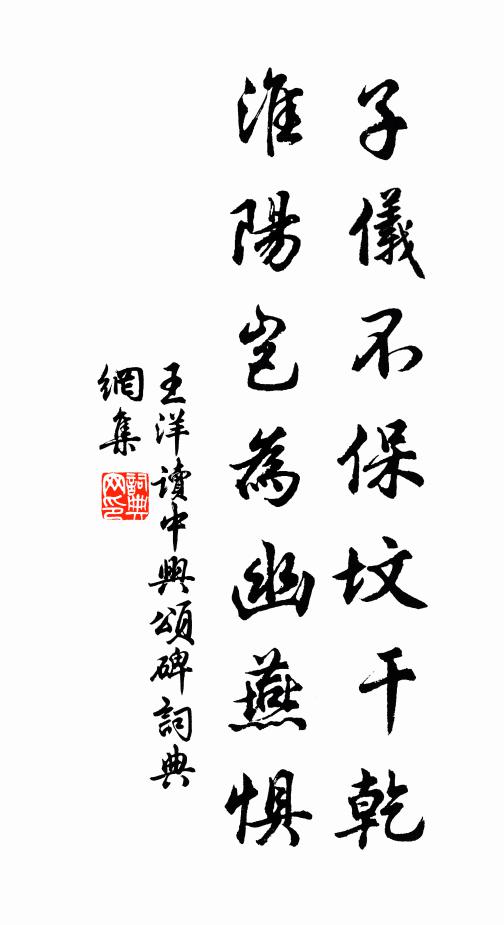 子儀不保墳干乾
淮陽豈為幽燕懼
王洋讀中興頌碑詞典
網集
詞典
网印